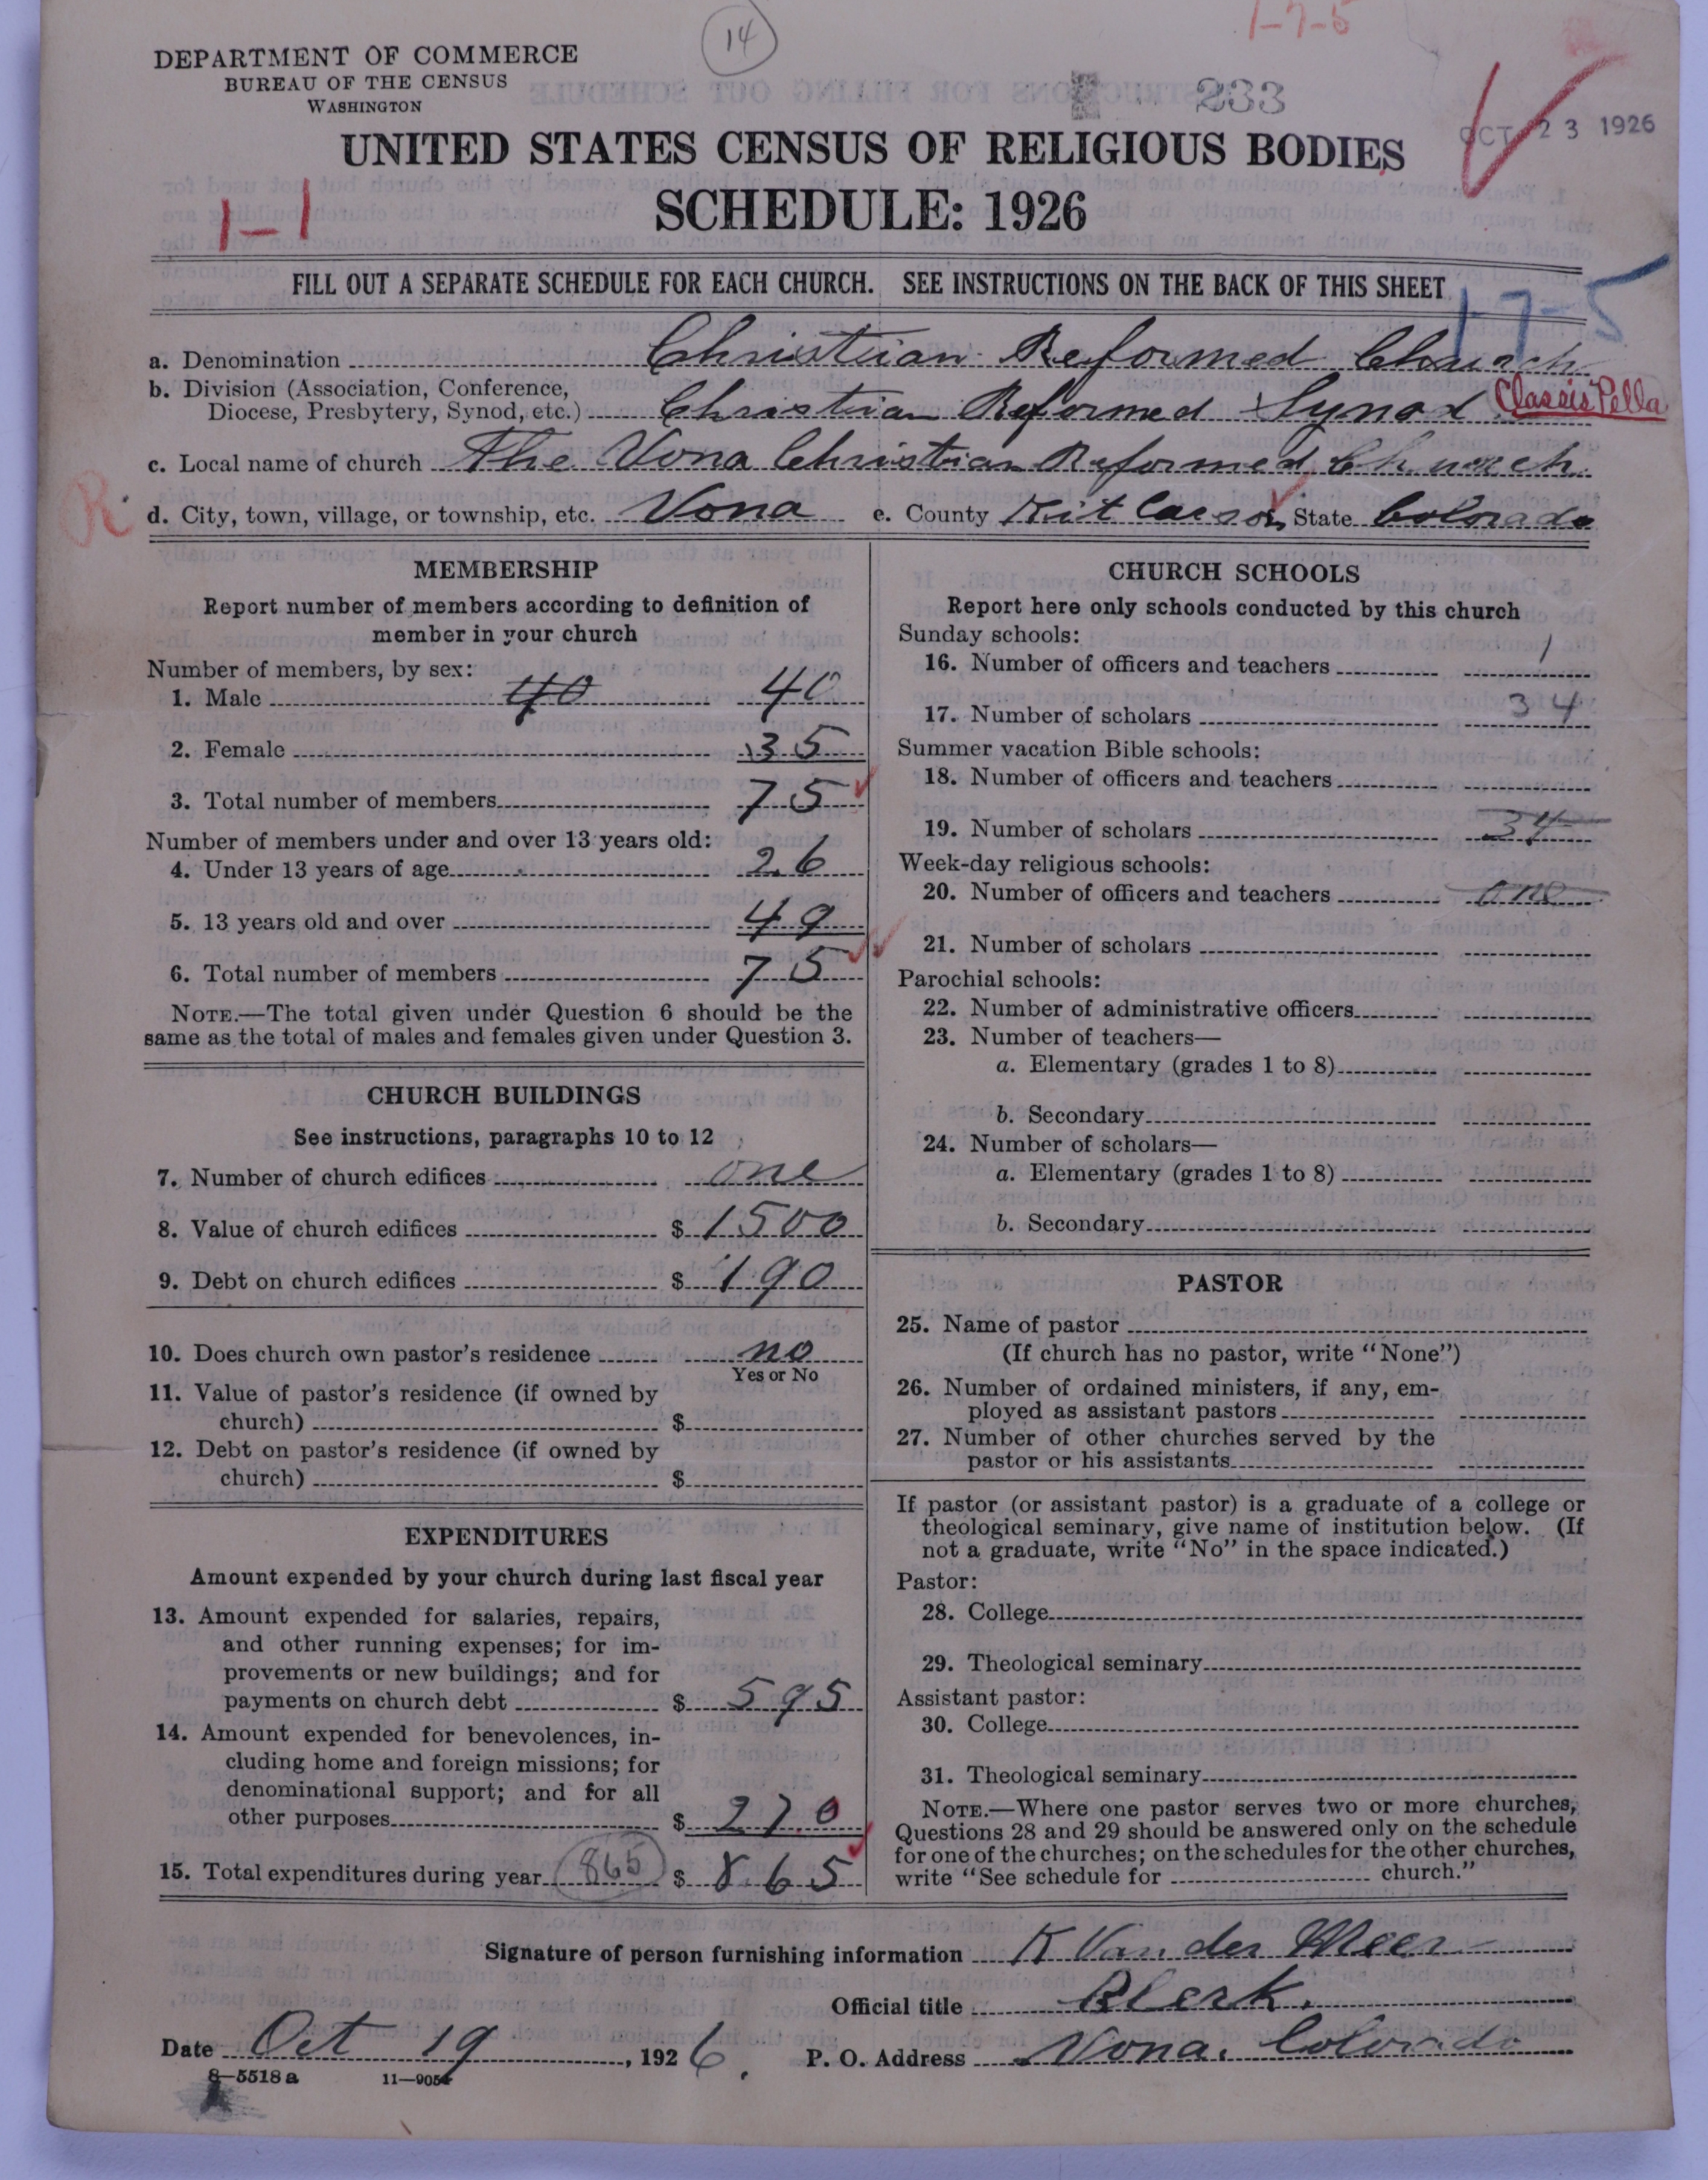 14
1-7-5
DEPARTMENT OF COMMERCE
BUREAU OF THE CENSUS
WASHINGTON
233
OCT 23 1926
UNITED STATES CENSUS OF RELIGIOUS BODIES
SCHEDULE: 1926
1-1
FILL OUT A SEPARATE SCHEDULE FOR EACH CHURCH. SEE INSTRUCTIONS ON THE BACK OF THIS SHEET
1-7-5
a. Denomination Christian Reformed Church
b. Division (Association, Conference,
Diocese, Presbytery, Synod, etc.) Christian Reformed Synod Classis Pella
c. Local name of church The Vona Christian Reformed Church
R
d. City, town, village, or township, etc. Vona e. County Kit Carson State Colorado
MEMBERSHIP
Report number of members according to definition of
member in your church
Number of members, by sex:
1. Male 40 40
2. Female 35
3. Total number of members 75
Number of members under and over 13 years old:
4. Under 13 years of age 26
5. 13 years old and over 49
6. Total number of members 75
NOTE.—The total given under Question 6 should be the
same as the total of males and females given under Question 3.
CHURCH BUILDINGS
See instructions, paragraphs 10 to 12
7. Number of church edifices one
8. Value of church edifices $ 1500
9. Debt on church edifices $ 190
10. Does church own pastor's residence no
Yes or No
11. Value of pastor's residence (if owned by
church) $
12. Debt on pastor's residence (if owned by
church) $
EXPENDITURES
Amount expended by your church during last fiscal year
13. Amount expended for salaries, repairs,
and other running expenses; for im-
provements or new buildings; and for
payments on church debt $ 595
14. Amount expended for benevolences, in-
cluding home and foreign missions; for
denominational support; and for all
other purposes $ 270
15. Total expenditures during year 865 $ 865
CHURCH SCHOOLS
Report here only schools conducted by this church
Sunday schools:
16. Number of officers and teachers 1
17. Number of scholars 34
Summer vacation Bible schools:
18. Number of officers and teachers
19. Number of scholars 34
Week-day religious schools:
20. Number of officers and teachers one
21. Number of scholars
Parochial schools:
22. Number of administrative officers
23. Number of teachers—
a. Elementary (grades 1 to 8)
b. Secondary
24. Number of scholars—
a. Elementary (grades 1 to 8)
b. Secondary
PASTOR
25. Name of pastor
(If church has no pastor, write "None")
26. Number of ordained ministers, if any, em-
ployed as assistant pastors
27. Number of other churches served by the
pastor or his assistants
If pastor (or assistant pastor) is a graduate of a college or
theological seminary, give name of institution below. (If
not a graduate, write "No" in the space indicated.)
Pastor:
28. College
29. Theological seminary
Assistant pastor:
30. College
31. Theological seminary
NOTE.—Where one pastor serves two or more churches,
Questions 28 and 29 should be answered only on the schedule
for one of the churches; on the schedules for the other churches,
write "See schedule for church."
Signature of person furnishing information K Van der Meer
Official title Clerk.
Date Oct 19, 1926. P. O. Address Vona. Colorado
8—5518 a 11—9054